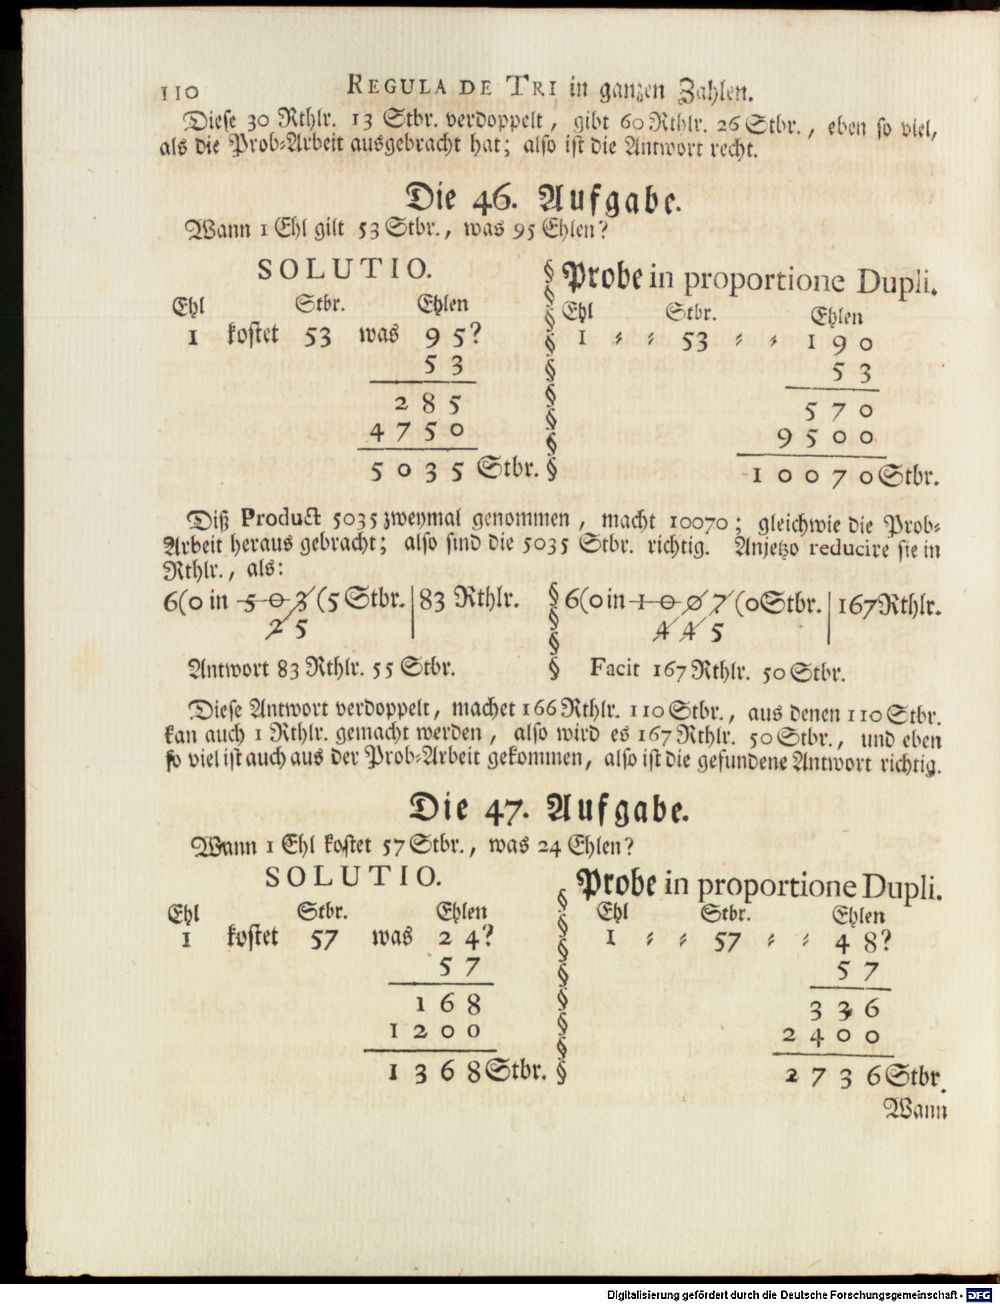 110 REGULA DE TRI in ganzen Zahlen.
Diese 30 Rthlr. 13 Stbr. verdoppelt, gibt 60 Rthlr. 26 Stbr., eben so viel,
als die Prob⸗Arbeit ausgebracht hat; also ist die Antwort recht.
Die 46. Aufgabe.
Wann 1 Ehl gilt 53 Stbr., was 95 Ehlen?
SOLUTIO.
Ehl Stbr. Ehlen
1 kostet 53 was 95?
53
285
4750
5035 Stbr.
§ Probe in proportione Dupli.
Ehl Stbr. Ehlen
1 ⸗ ⸗ 53 ⸗ ⸗ 190
53
570
9500
10070 Stbr.
Diß Product 5035 zweymal genommen, macht 10070; gleichwie die Prob⸗
Arbeit heraus gebracht; also sind die 5035 Stbr. richtig. Anjetzo reducire sie in
Rthlr., als:
6(0 in 5 0 3 (5 Stbr. | 83 Rthlr.
2 5
Antwort 83 Rthlr. 55 Stbr.
§ 6(0 in 1 0 0 7 (0 Stbr. | 167 Rthlr.
4 4 5
§ Facit 167 Rthlr. 50 Stbr.
Diese Antwort verdoppelt, machet 166 Rthlr. 110 Stbr., aus denen 110 Stbr.
kan auch 1 Rthlr. gemacht werden, also wird es 167 Rthlr. 50 Stbr., und eben
so viel ist auch aus der Prob⸗Arbeit gekommen, also ist die gefundene Antwort richtig.
Die 47. Aufgabe.
Wann 1 Ehl kostet 57 Stbr., was 24 Ehlen?
SOLUTIO.
Ehl Stbr. Ehlen
1 kostet 57 was 24?
57
168
1200
1368 Stbr.
§ Probe in proportione Dupli.
Ehl Stbr. Ehlen
1 ⸗ ⸗ 57 ⸗ ⸗ 48?
57
336
2400
2736 Stbr.
Wann
Digitalisierung gefördert durch die Deutsche Forschungsgemeinschaft - DFG